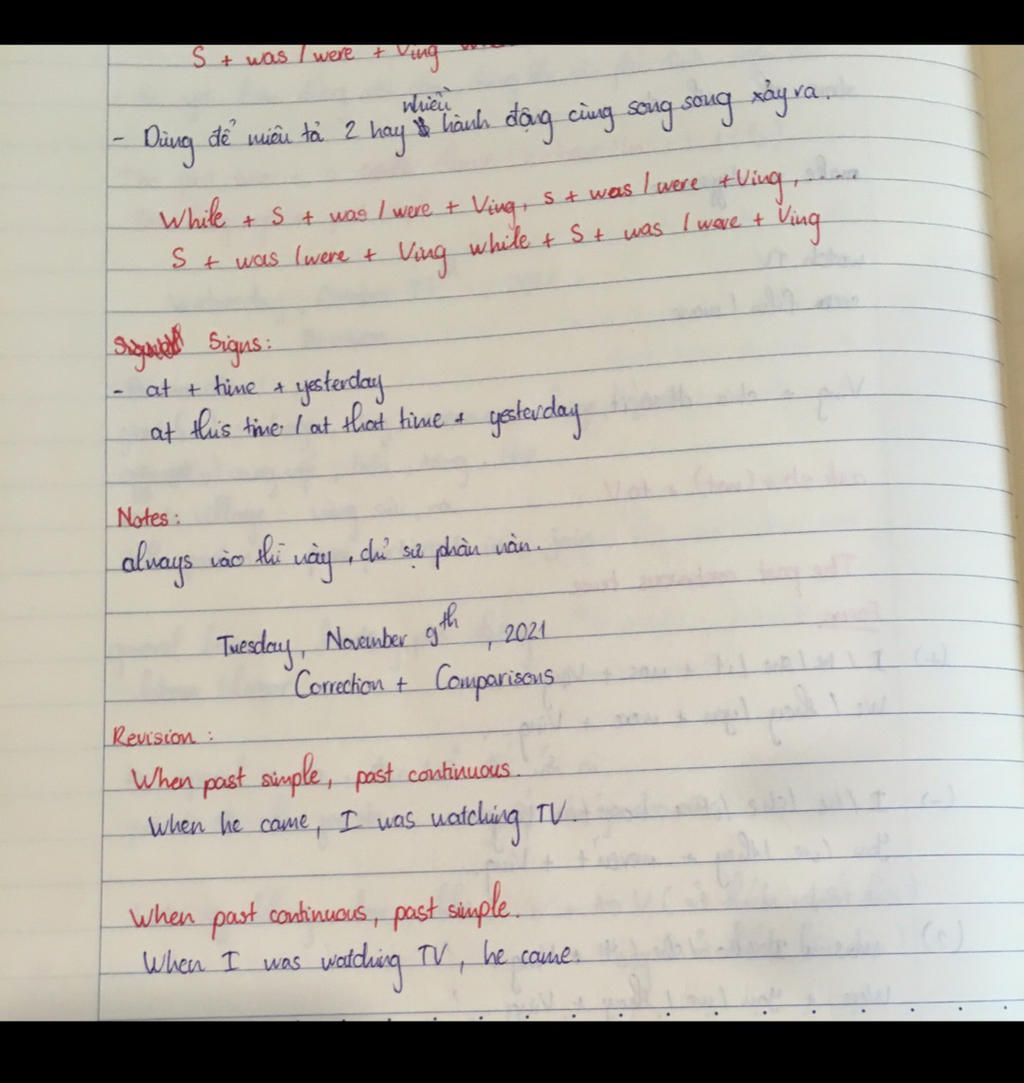 S + was / were + Ving
nhiều
- Dùng để miêu tả 2 hay hành động cùng song song xảy ra.
While + S + was / were + Ving, S + was / were + Ving, ...
S + was / were + Ving while + S + was / were + Ving
Signs:
- at + time + yesterday
at this time / at that time + yesterday
Notes:
always vào thì này, chỉ sự phàn nàn.
Tuesday, November 9th, 2021
Correction + Comparisons
Revision:
When past simple, past continuous.
When he came, I was watching TV.
When past continuous, past simple.
When I was watching TV, he came.